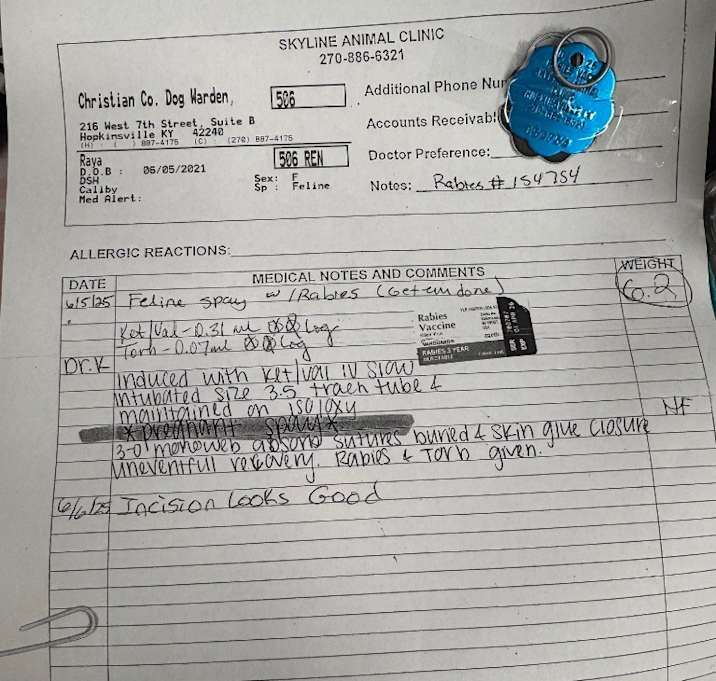 SKYLINE ANIMAL CLINIC
270-886-6321
Christian Co. Dog Warden, 506
Additional Phone Num
216 West 7th Street, Suite B
Hopkinsville KY 42240
(H) 887-4175 (C) : (270) 887-4175
Accounts Receivabl
Raya 506 REN
Doctor Preference:
D.O.B : 06/05/2021
DSH Sex: F
Caliby Sp : Feline
Med Alert:
Notes: Rabies # 154754
ALLERGIC REACTIONS:
DATE MEDICAL NOTES AND COMMENTS WEIGHT
6/5/25 Feline spay w/ Rabies (Get em done) 6.2
Ket/Val - 0.31 ml Log
Torb - 0.07ml Log
Rabies
Vaccine
RABIES 3 YEAR
EXP
Dr. K
Induced with ket/val IV slow
intubated size 3.5 trach tube &
maintained on iso/oxy
*pregnant spay*
NF
3-0 monoweb absorb sutures buried & skin glue closure
uneventful recovery. Rabies & Torb given.
6/6/25 Incision Looks Good